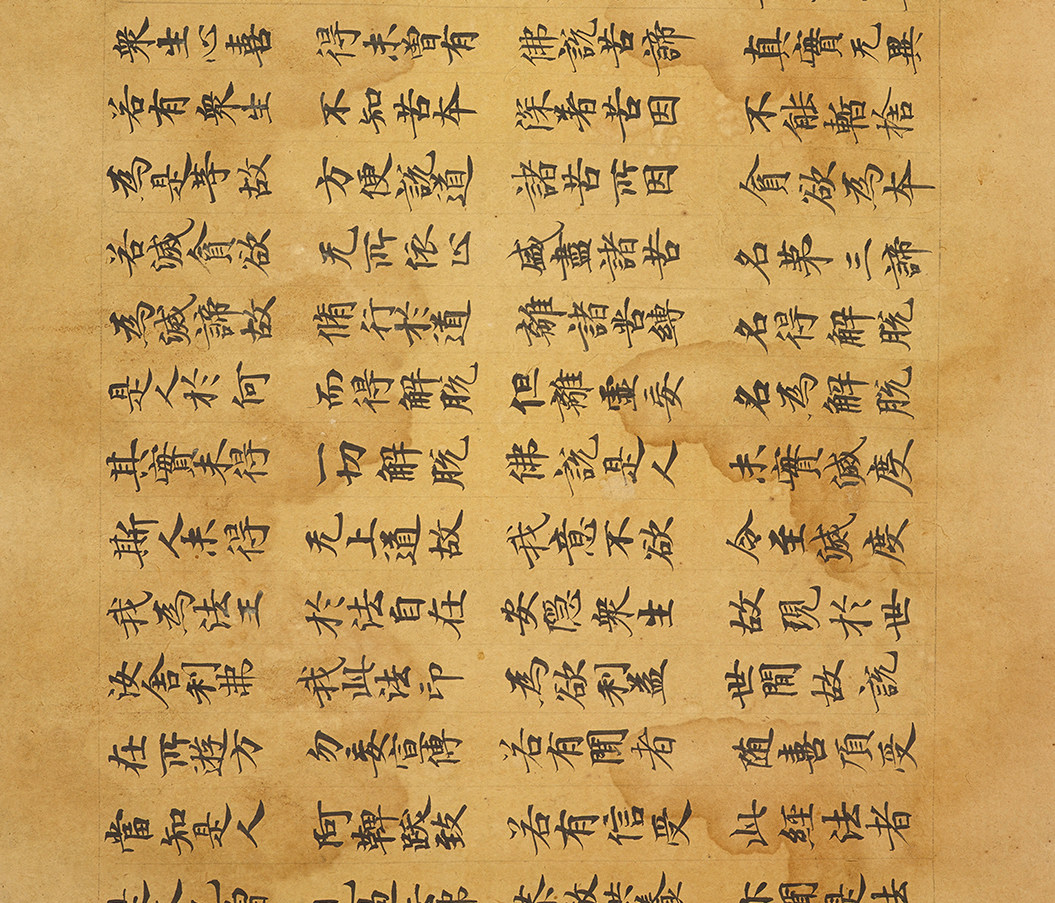 衆生心喜 得未曾有 佛説苦諦 真實无異
若有衆生 不知苦本 深著苦因 不能暫捨
為是等故 方便説道 諸苦所因 貪欲為本
若滅貪欲 无所依止 盛盡諸苦 名第三諦
為滅諦故 脩行於道 離諸苦縛 名得解脱
是人於何 而得解脱 但離虛妄 名為解脱
其實未得 一切解脱 佛説是人 未實滅度
斯人未得 无上道故 我意不欲 令至滅度
我為法王 於法自在 安隱衆生 故現於世
汝舍利弗 我此法印 為欲利益 世間故説
在所遊方 勿妄宣傳 若有聞者 随喜頂受
當知是人 阿鞞跋致 若有信受 此經法者